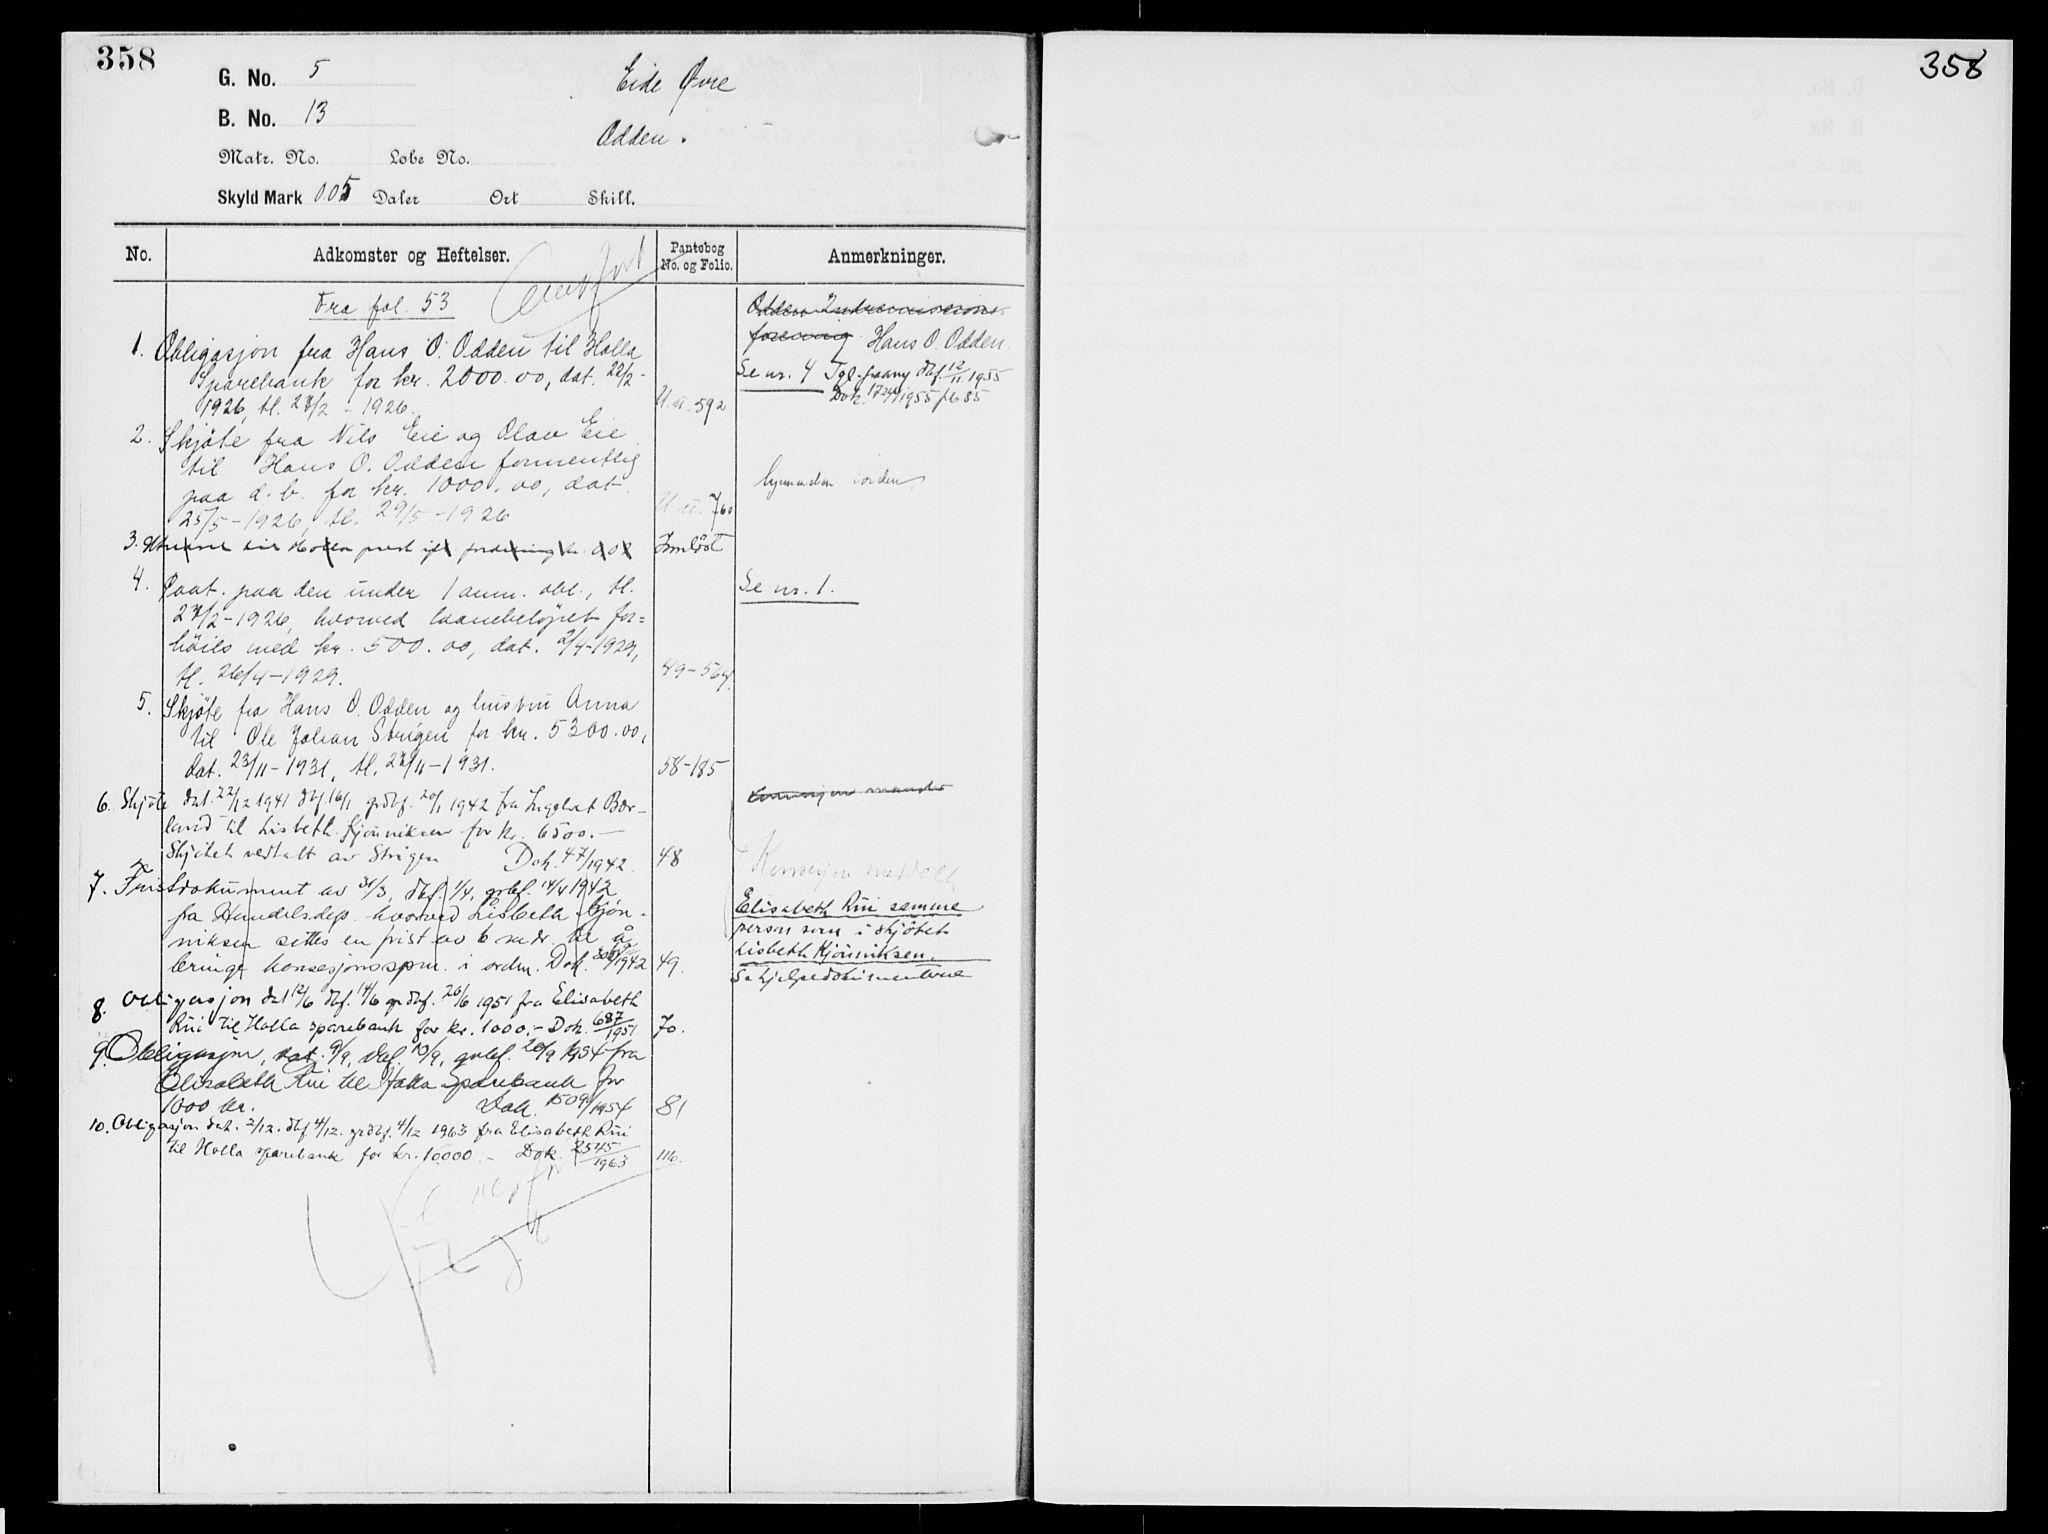 358
G. No. 5
B. No. 13
Eide Øvre
Odden.
Matr. No. Løbe No.
Skyld Mark 0.05 Daler Ort Skill.
No. Adkomster og Heftelser. Pantebog No. og Folio. Anmerkninger.
Fra fol. 53
1. Obligasjon fra Hans O. Odden til Holla
Sparebank for kr. 2000.00, dat. 22/2-
1926, tl. 27/2 - 1926. 592
2. Skjöte fra Nils Eie og Olav Eie
til Hans O. Odden formentlig
paa d. b. for kr. 1000.00, dat.
25/5-1926, tl. 29/5-1926 760
3. Innlöst
4. Paat. paa den under 1 anm. obl., tl.
27/2-1926, hvorved laanebelöpet for=
höies med kr. 500.00, dat. 2/4-1929,
tl. 26/4-1929. 49-564.
5. Skjöte fra Hans O. Odden og hustru Anna
til Ole Johan Strigen for kr. 5300.00,
dat. 23/11-1931, tl. 27/11-1931. 58-185
6. Skjöte dat. 22/12 1941 dbf. 16/1 grdbf. 20/1 1942 fra Ingebret Bor-
land til Lisbeth Kjönniksen for kr. 6500.-
Skjötet vedtatt av Strigen Dok. 47/1942. 48
7. Fristdokument av 31/3, dbf. 1/4, grbf. 14/4 1942
fra Handelsdep. hvorved Lisbeth Kjön-
niksen settes en frist av 6 mdr. til å
bringe konsesjonsspm. i orden. Dok. /1942 49.
8. Obligasjon dat 12/6 dbf. 14/6 grdbf. 26/6 1951 fra Elisabeth
Rui til Holla sparebank for kr. 1000.- Dok. 687/1951 70.
9. Obligasjon, dat. 9/9, dbf. 10/9, grbf. 20/9 1954 fra
Elisabeth Rui til Holla Sparebank for
1000 kr. Dok. 1509/1954 81
10. Obligasjon dat. 2/12. dbf 4/12. grdbf. 4/12 1963 fra Elisabeth Rui
til Holla sparebank for kr. 10000.- Dok. 2545/1963 116.
Odden Indremisions-
forening Hans O. Odden.
Se nr. 4 Tgl. paany dbf. 12/11 1955
Se nr. 1.
Konsesjon meddelt
Elisabeth Rui samme
person som i skjötet
Lisbeth Kjönniksen.
Se hjelpedokumentene
358